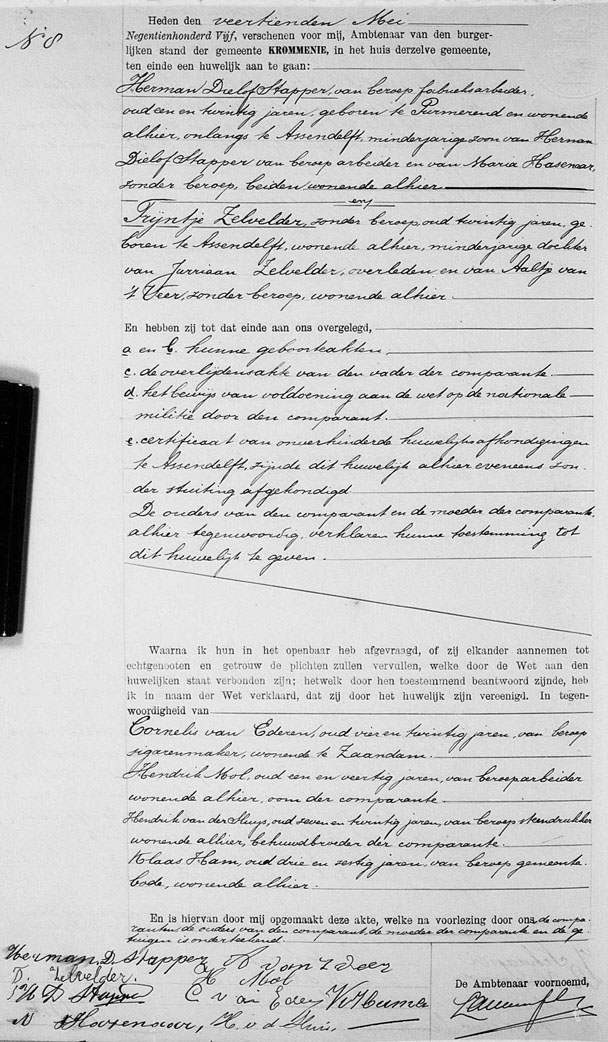 No 8
Heden den veertienden Mei
Negentienhonderd Vijf, verschenen voor mij, Ambtenaar van den burger-
lijken stand der gemeente KROMMENIE, in het huis derzelve gemeente,
ten einde een huwelijk aan te gaan:
Herman Dielof Stapper, van beroep fabrieksarbeider,
oud een en twintig jaren, geboren te Purmerend en wonende
alhier, onlangs te Assendelft, minderjarige zoon van Herman
Dielof Stapper van beroep arbeider en van Maria Hasenaar,
zonder beroep, beiden wonende alhier
en
Trijntje Zelvelder, zonder beroep, oud twintig jaren, ge-
boren te Assendelft, wonende alhier, minderjarige dochter
van Jurriaan Zelvelder, overleden en van Aaltje van
't Veer, zonder beroep, wonende alhier.
En hebben zij tot dat einde aan ons overgelegd,
a en b. hunne geboorteakten,
c. de overlijdensakte van den vader der comparante.
d. het bewijs van voldoening aan de wet op de nationale
militie door den comparant.
e. certificaat van onverhinderde huwelijksafkondigingen
te Assendelft, zijnde dit huwelijk alhier eveneens zon-
der stuiting afgekondigd
De ouders van den comparant en de moeder der comparante,
alhier tegenwoordig, verklaren hunne toestemming tot
dit huwelijk te geven.
Waarna ik hun in het openbaar heb afgevraagd, of zij elkander aannemen tot
echtgenooten en getrouw de plichten zullen vervullen, welke door de Wet aan den
huwelijken staat verbonden zijn; hetwelk door hen toestemmend beantwoord zijnde, heb
ik in naam der Wet verklaard, dat zij door het huwelijk zijn vereenigd. In tegen-
woordigheid van
Cornelis van Ederen, oud vier en twintig jaren, van beroep
sigarenmaker, wonende te Zaandam.
Hendrik Mol, oud een en veertig jaren, van beroep arbeider
wonende alhier, oom der comparante.
Hendrik van der Sluys, oud zeven en twintig jaren, van beroep steendrukker
wonende alhier, behuwdbroeder der comparante.
Klaas Ham, oud drie en zestig jaren, van beroep gemeente-
bode, wonende alhier.
En is hiervan door mij opgemaakt deze akte, welke na voorlezing door ons, de compa-
ranten, de ouders van den comparant, de moeder der comparante en de ge-
tuigen is onderteekend.
Herman D Stapper A van t Veer
T. Zelvelder. H Mol
H D Stapper C van Ederen K Ham
M Hasenaar, H. v. d Sluis
De Ambtenaar voornoemd,